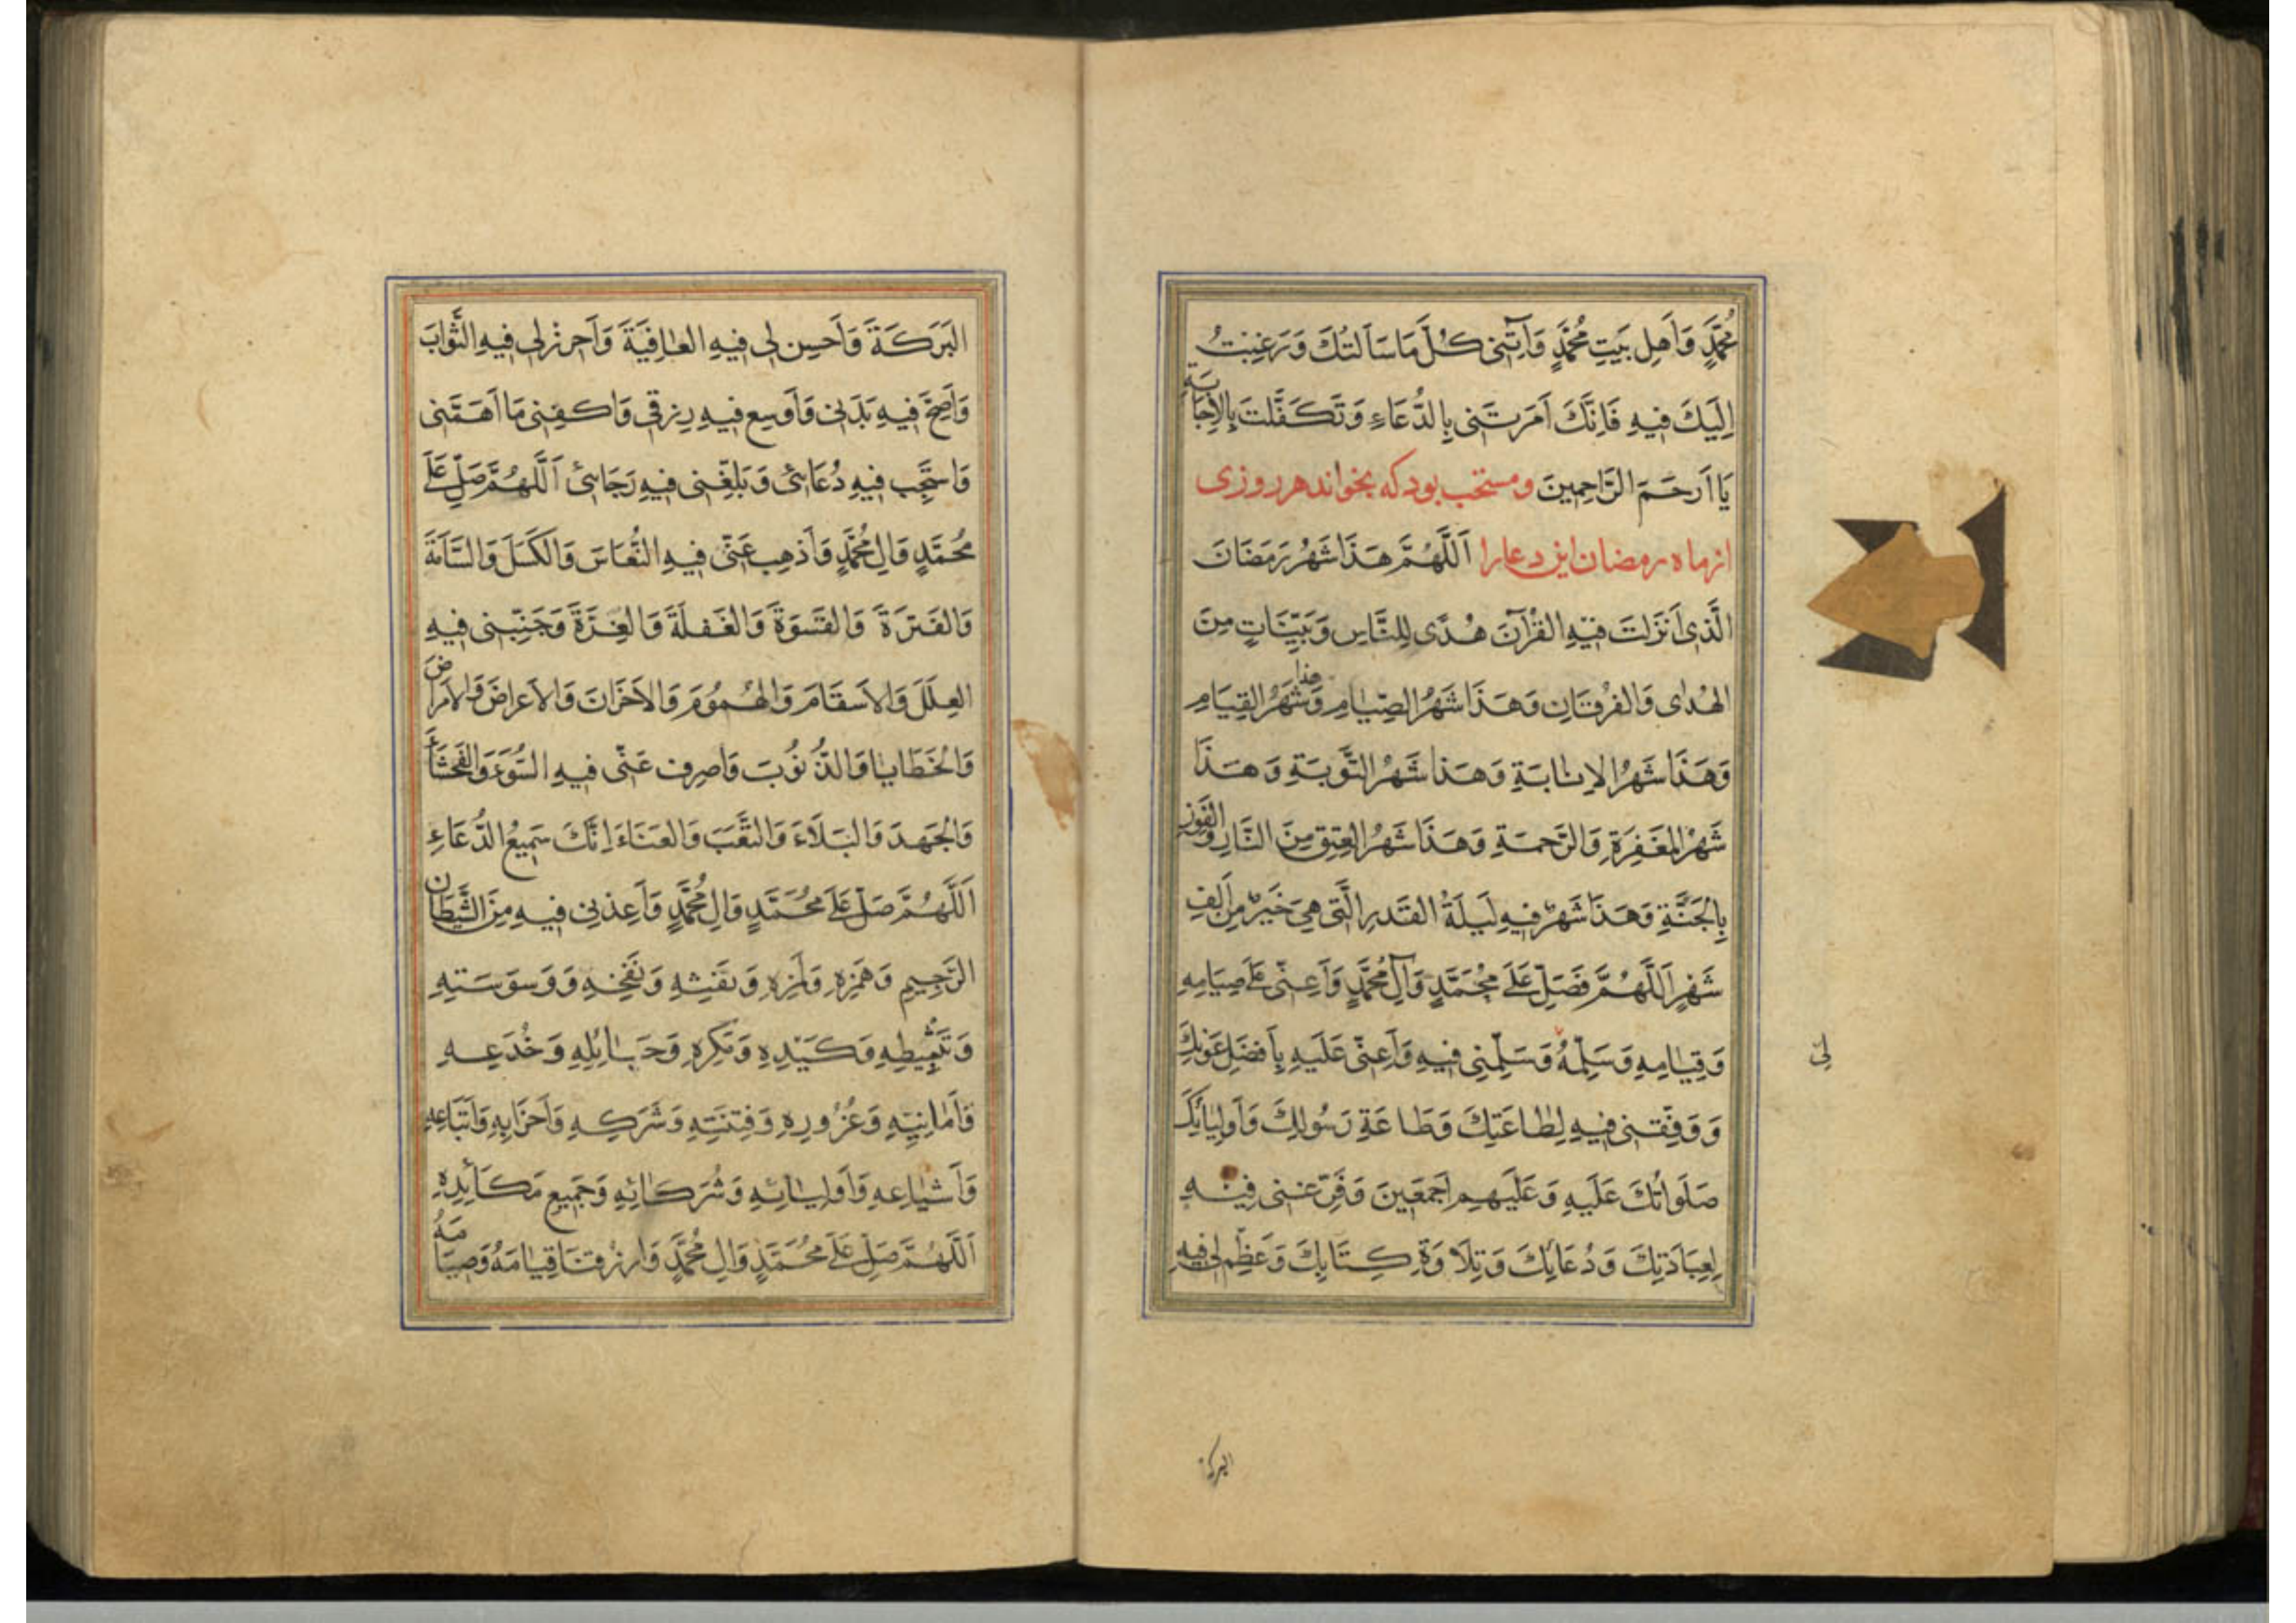 مُحَمَّدٍ وَاَهلِ بَيتِ مُحَمَّدٍ وَآتِنى كُلَّ مَا سَاَلتُكَ وَرَغِبتُ
اِلَيكَ فيهِ فَاِنَّكَ اَمَرتَنى بِالدُّعَاءِ وَتَكَفَّلتَ بِالاِجَابَةِ
يَا اَرحَمَ الرَّاحِمينَ ومستحب بود که بخواند هر روزى
از ماه رمضان اين دعا را اَللَّهُمَّ هَذَا شَهرُ رَمَضَانَ
الَّذى اَنزَلتَ فيهِ القُرآنَ هُدًى لِلنَّاسِ وَبَيِّنَاتٍ مِنَ
الهُدى وَالفُرقَانِ وَهَذَا شَهرُ الصِّيَامِ وَهذا شَهرُ القِيَامِ
وَهَذَا شَهرُ الاِنابَةِ وَهَذا شَهرُ التَّوبَةِ وَهَذَا
شَهرُ المَغفِرَةِ وَالرَّحمَةِ وَهَذَا شَهرُ العِتقِ مِنَ النَّارِ وَالفَوزِ
بِالجَنَّةِ وَهَذَا شَهرٌ فيهِ لَيلَةُ القَدرِ الَّتى هِىَ خَيرٌ مِن اَلفِ
شَهرٍ اَللَّهُمَّ فَصَلِّ عَلَى مُحَمَّدٍ وَآلِ مُحَمَّدٍ وَاَعِنّى عَلَى صِيَامِهِ
وَقِيَامِهِ وَسَلِّمهُ وَسَلِّمنِى فيهِ وَاَعِنّى عَلَيهِ بِاَفضَلِ عَونِكَ
لِى
وَوَفِّقنى فيهِ لِطَاعَتِكَ وَطَاعَةِ رَسُولِكَ وَاَولِيَائِكَ
صَلَوَاتُكَ عَلَيهِ وَعَلَيهِم اَجمَعينَ وَفَرِّغنى فيهِ
لِعِبَادَتِكَ وَدُعَائِكَ وَتِلَاوَةِ كِتَابِكَ وَعَظِّم لى فيهِ
البركة
البَرَكَةَ وَاَحسِن لى فيهِ العَافِيَةَ وَاَحرِز لى فيهِ الثَّوَابَ
وَاَصِحَّ فيهِ بَدَنى وَاَوسِع فيهِ رِزقى وَاكفِنى مَا اَهَمَّنى
وَاستَجِب فيهِ دُعَائى وَبَلِّغنى فيهِ رَجَائى اَللَّهُمَّ صَلِّ عَلَى
مُحَمَّدٍ وَالِ مُحَمَّدٍ وَاَذهِب عَنّى فيهِ النُّعَاسَ وَالكَسَلَ وَالسَّأمَةَ
وَالفَترَةَ وَالقَسوَةَ وَالغَفلَةَ وَالغِرَّةَ وَجَنِّبنى فيهِ
العِلَلَ وَالاَسقَامَ وَالهُمُومَ وَالاَحزَانَ وَالاَعراضَ وَالاَمرَاضَ
وَالخَطَايا وَالذُّنُوبَ وَاصرِف عَنّى فيهِ السُّوءَ وَالفَحشَاءَ
وَالجَهدَ وَالبَلَاءَ وَالتَّعَبَ وَالعَنَاءَ اِنَّكَ سَميعُ الدُّعَاءِ
اَللَّهُمَّ صَلِّ عَلَى مُحَمَّدٍ وَالِ مُحَمَّدٍ وَاَعِذنى فيهِ مِنَ الشَّيطَانِ
الرَّجيمِ وَهَمزِهِ وَلَمزِهِ وَنَفثِهِ وَنَفخِهِ وَوَسوَسَتِهِ
وَتَثبيطِهِ وَكَيدِهِ وَمَكرِهِ وَحَبَائِلِهِ وَخُدَعِهِ
وَاَمَانِيِّهِ وَغُرُورِهِ وَفِتنَتِهِ وَشَرَكِهِ وَاَحزَابِهِ وَاَتبَاعِهِ
وَاَشيَاعِهِ وَاَولِيَائِهِ وَشُرَكَائِهِ وَجَميعِ مَكَائِدِهِ
اَللَّهُمَّ صَلِّ عَلَى مُحَمَّدٍ وَالِ مُحَمَّدٍ وَارزُقنَا قِيَامَهُ وَصِيَامَهُ